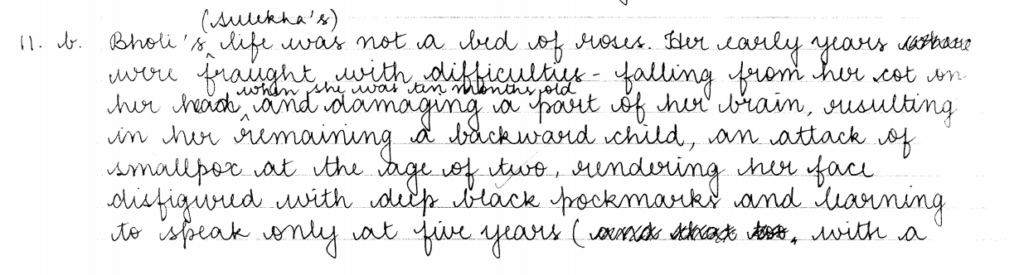 (Sulekha's)
11. b. Bholi's life was not a bed of roses. Her early years
were fraught with difficulties - falling from her cot on
when she was ten months old
her head, and damaging a part of her brain, resulting
in her remaining a backward child, an attack of
smallpox at the age of two, rendering her face
disfigured with deep black pockmarks and learning
to speak only at five years ( and that too, with a